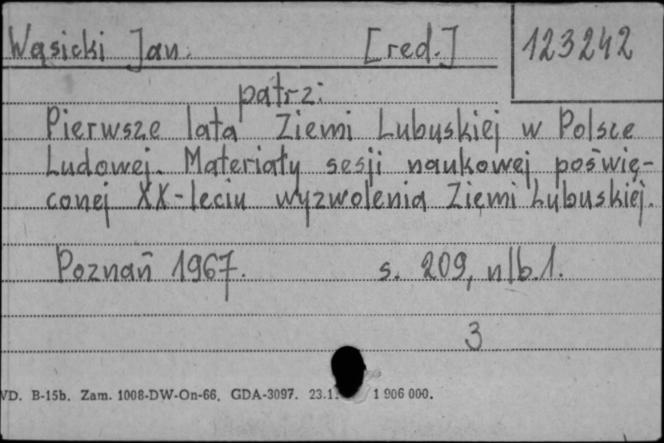 Wąsicki Jan. [red.] 123242
patrz:
Pierwsze lata Ziemi Lubuskiej w Polsce
Ludowej. Materiały sesji naukowej poświę-
conej XX-leciu wyzwolenia Ziemi Lubuskiej.
Poznań 1967. s. 209, nlb.1.
3
VD. B-15b. Zam. 1008-DW-On-66. GDA-3097. 23.1 1 906 000.